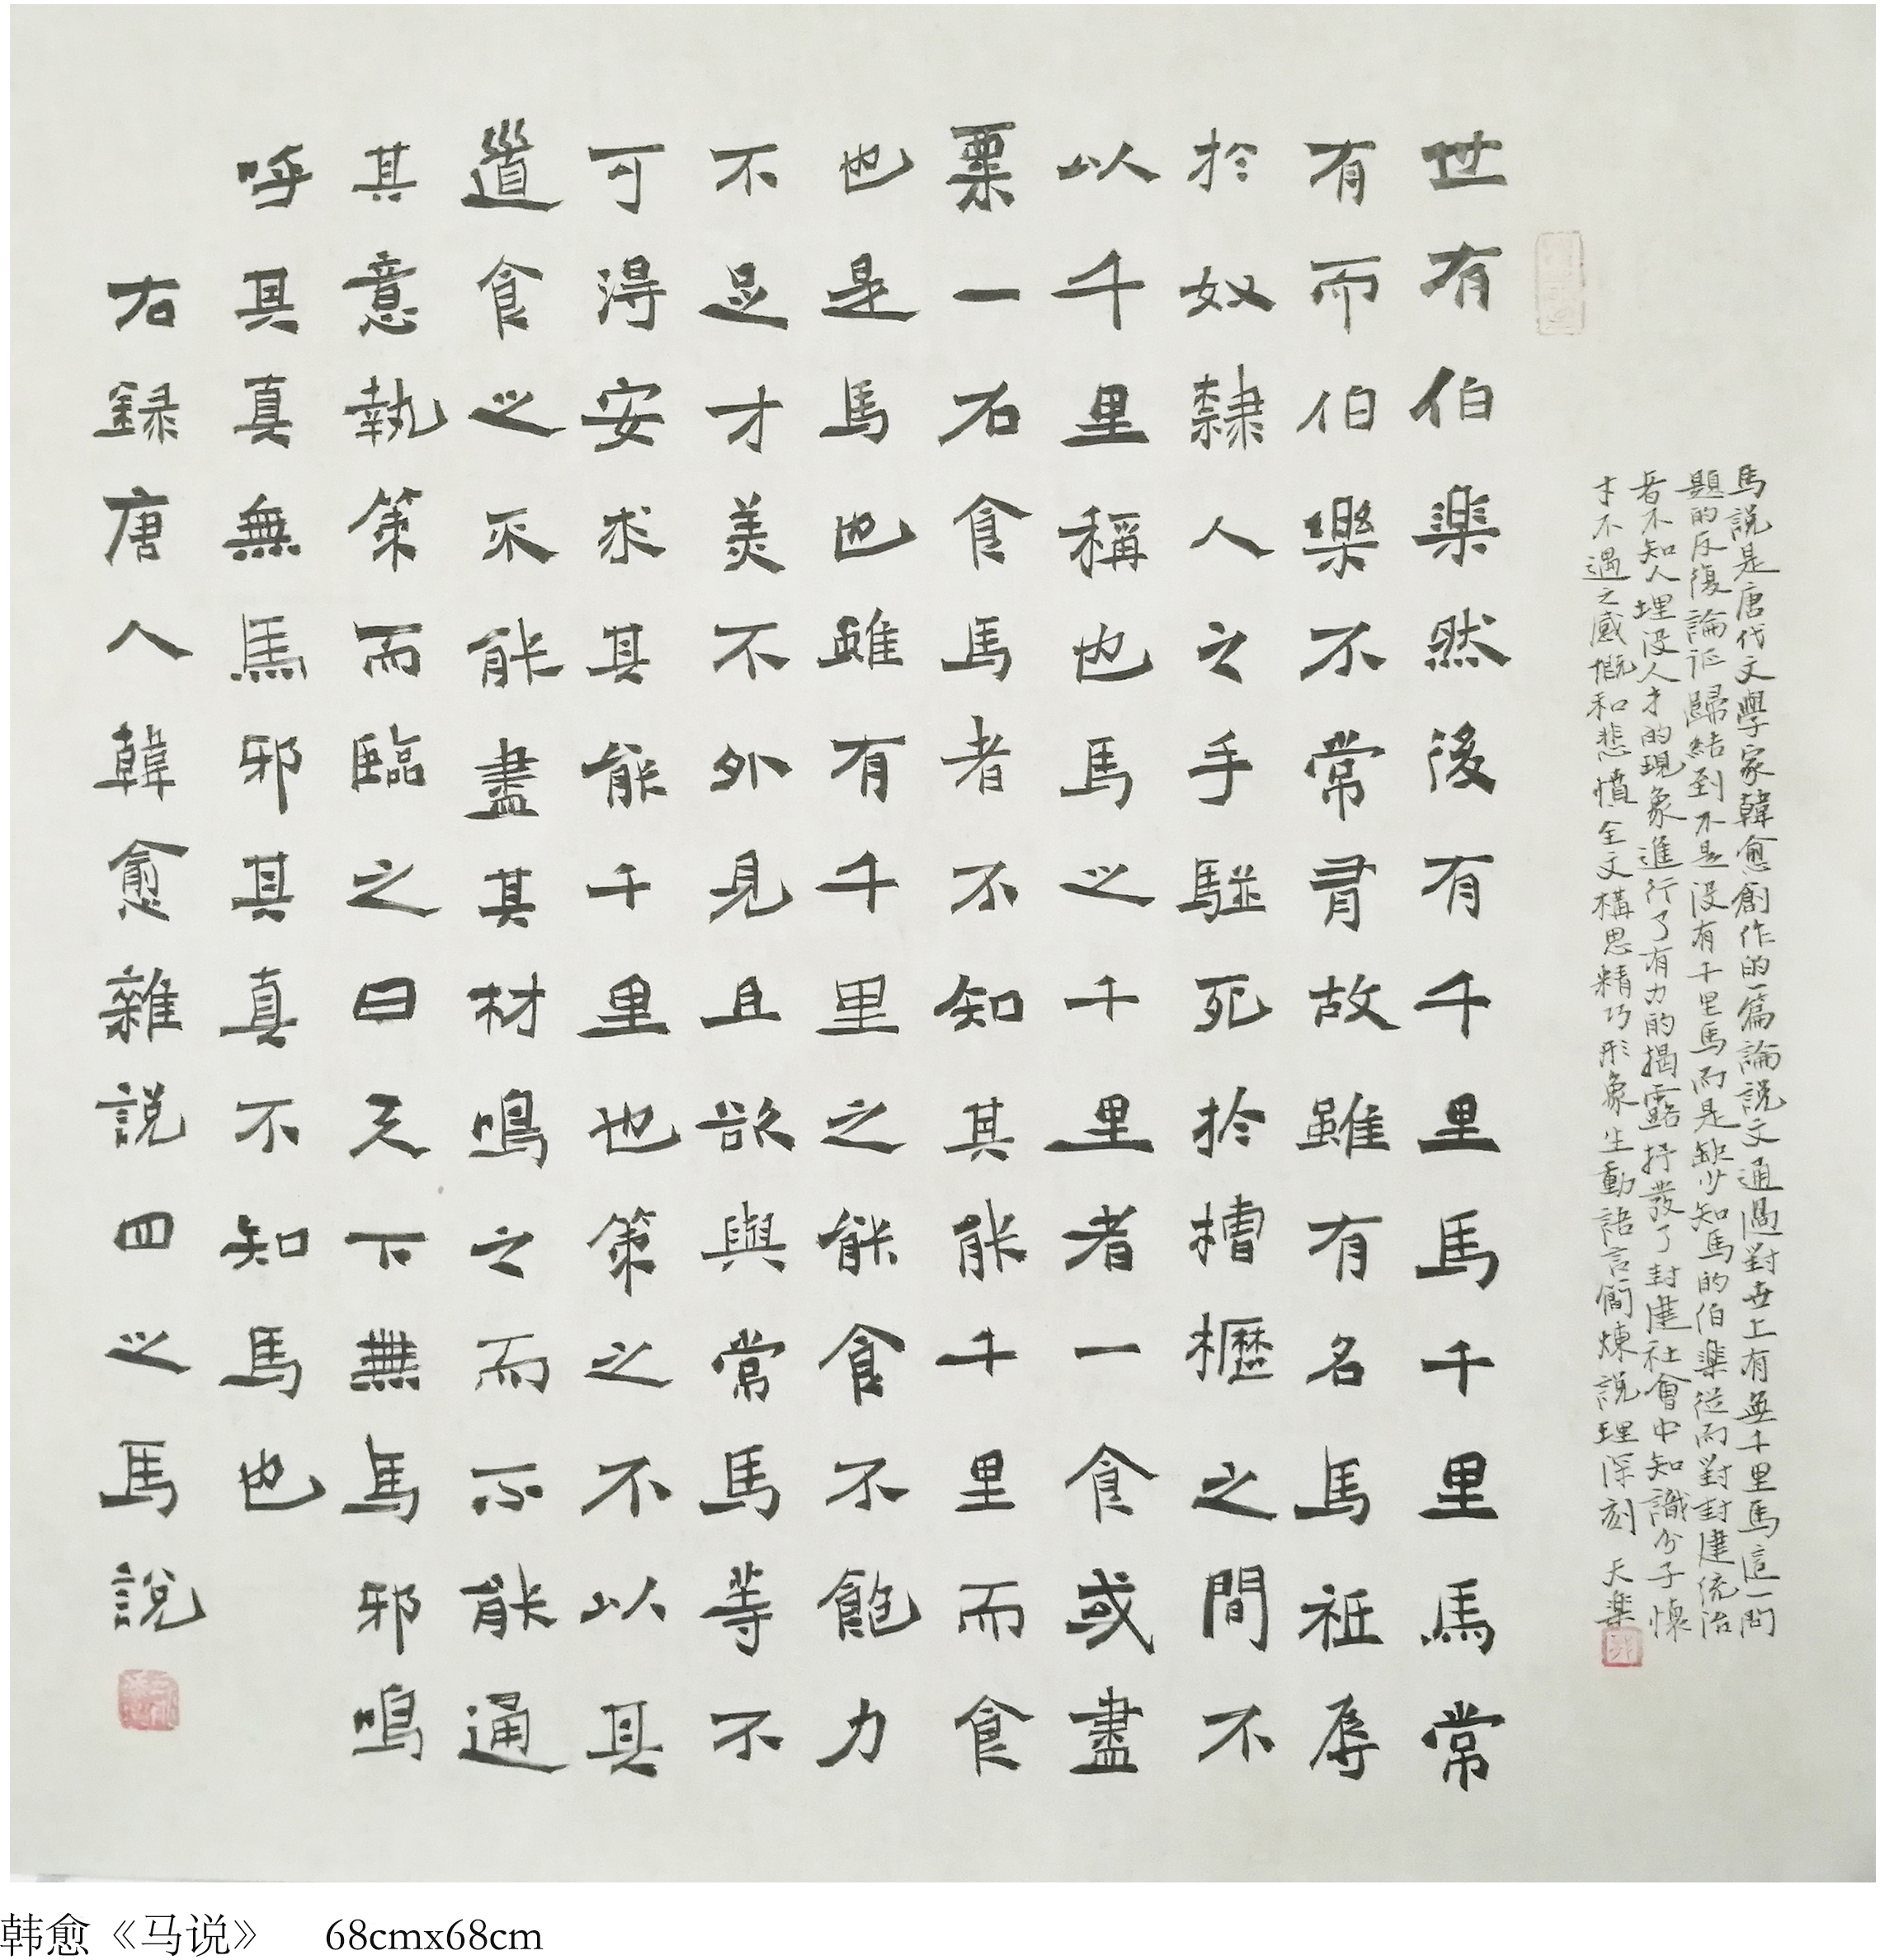 世有伯楽然後有千里馬千里馬常
有而伯樂不常有故雖有名馬祗辱
於奴隸人之手駢死於槽櫪之間不
以千里稱也馬之千里者一食或盡
粟一石食馬者不知其能千里而食
也是馬也雖有千里之能食不飽力
不足才美不外見且欲與常馬等不
可得安求其能千里也策之不以其
道食之不能盡其材鳴之而不能通
其意執策而臨之曰天下無馬邪鳴
呼其真無馬邪其真不知馬也
右録唐人韓愈雜說四之馬說
馬說是唐代文學家韓愈創作的一篇論說文通過對世上有無千里馬這一問
題的反復論証歸結到不是沒有千里馬而是缺少知馬的伯楽從而對封建統治
者不知人埋没人才的現象進行了有力的揭露抒發了封建社會中知識分子懷
才不遇之感慨和悲憤全文構思精巧形象生動語言簡煉說理深刻 天楽
韩愈《马说》 68cmx68cm